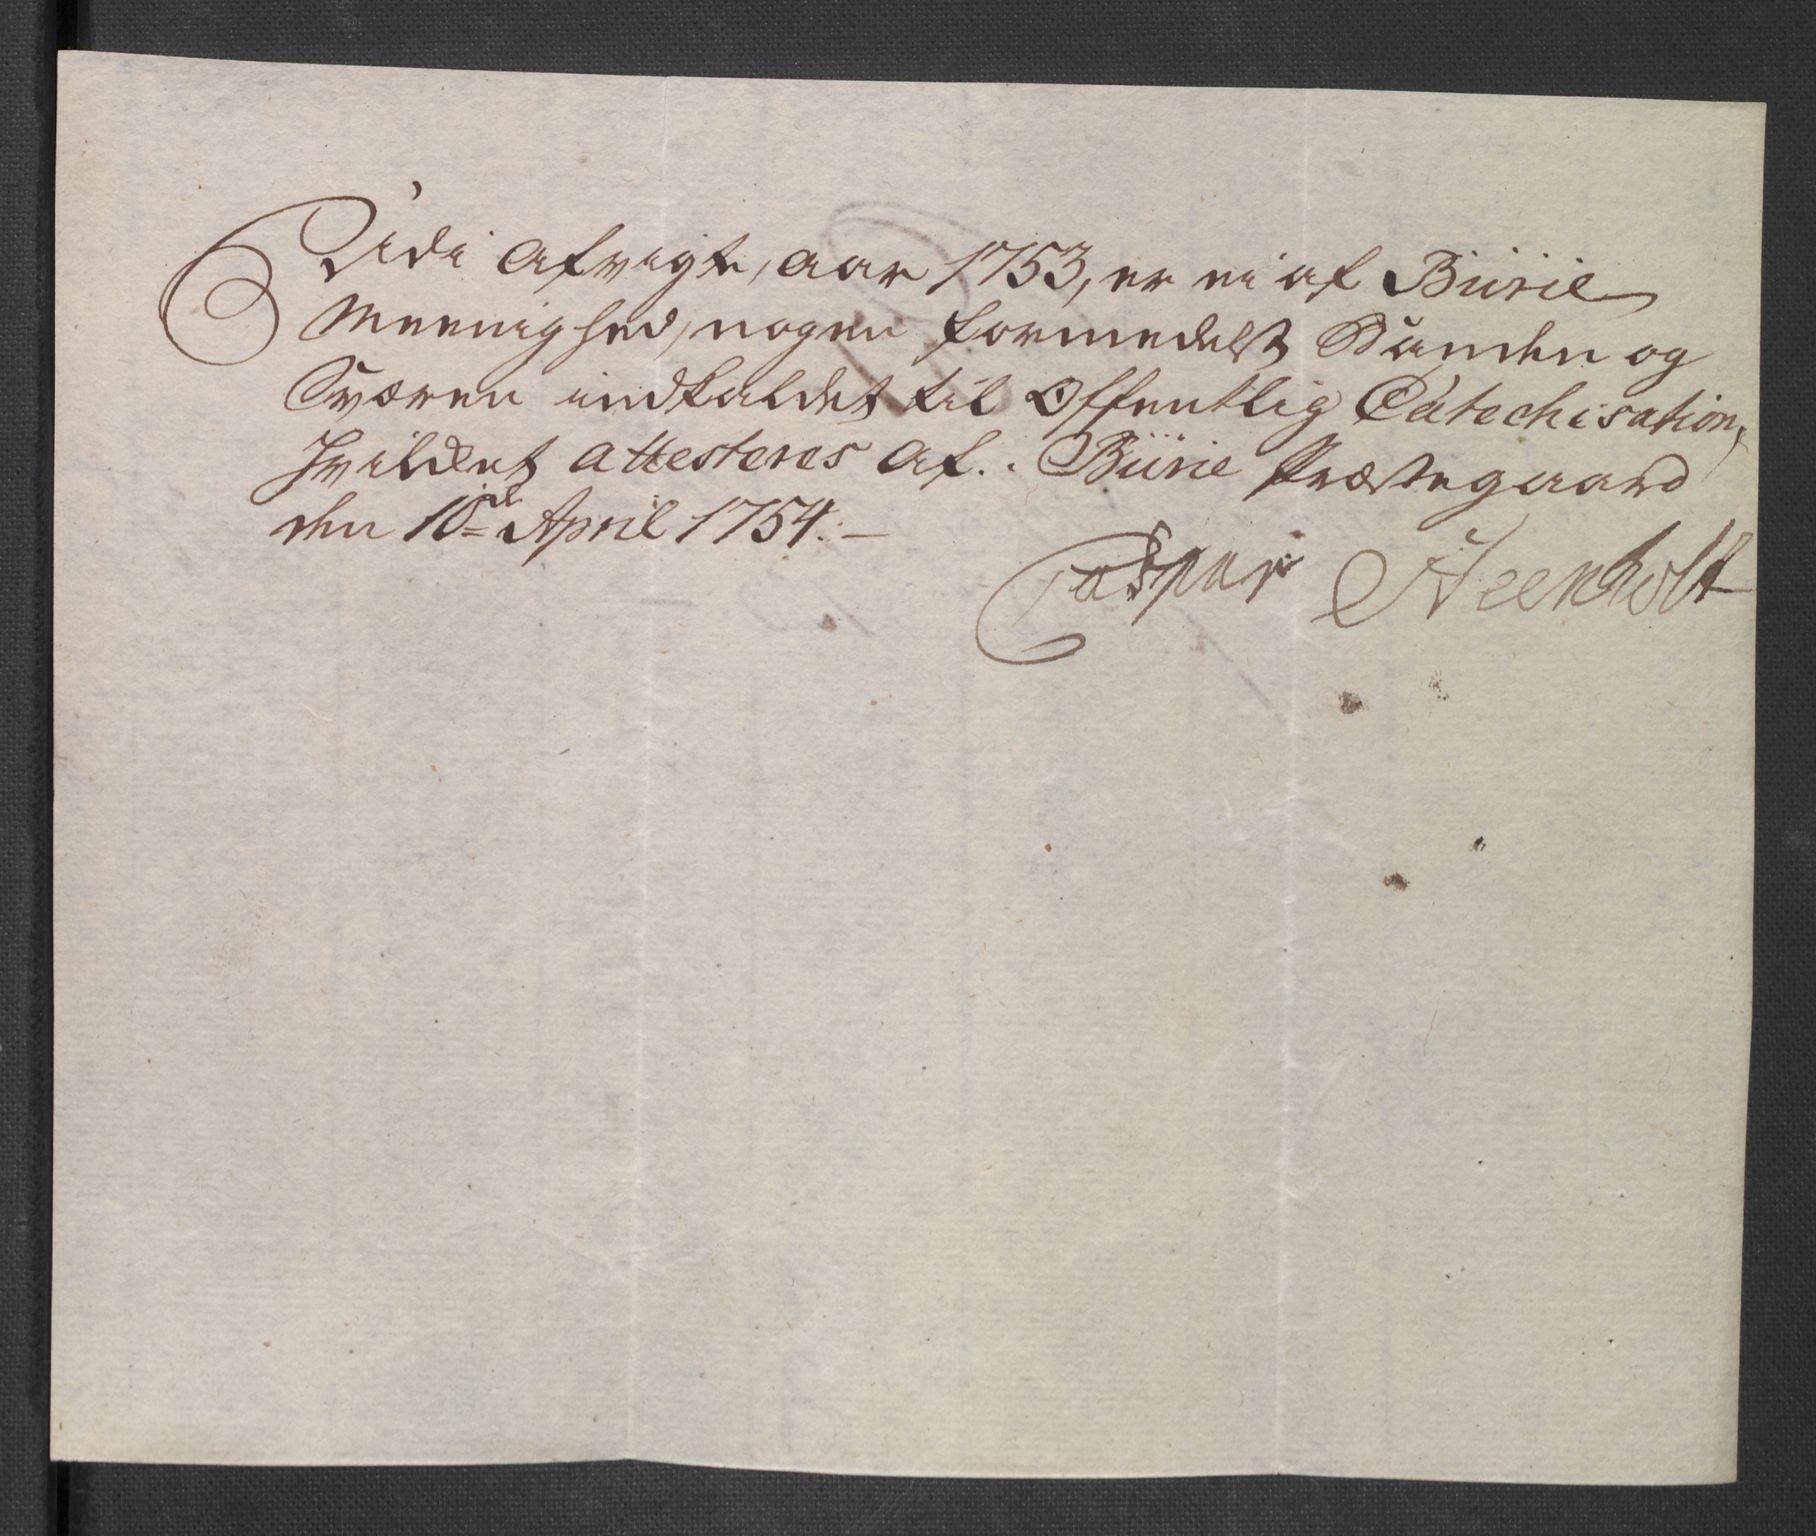 Udi afvigte aar 1753, er ei af Bürie
Meenighed, nogen formedelst Banden og
Sværen indkaldet til Offentlig Catechisation,
hvilket attesteres af. Bürie Præstegaard
den 10de April 1754. –
Caspar Heenholt